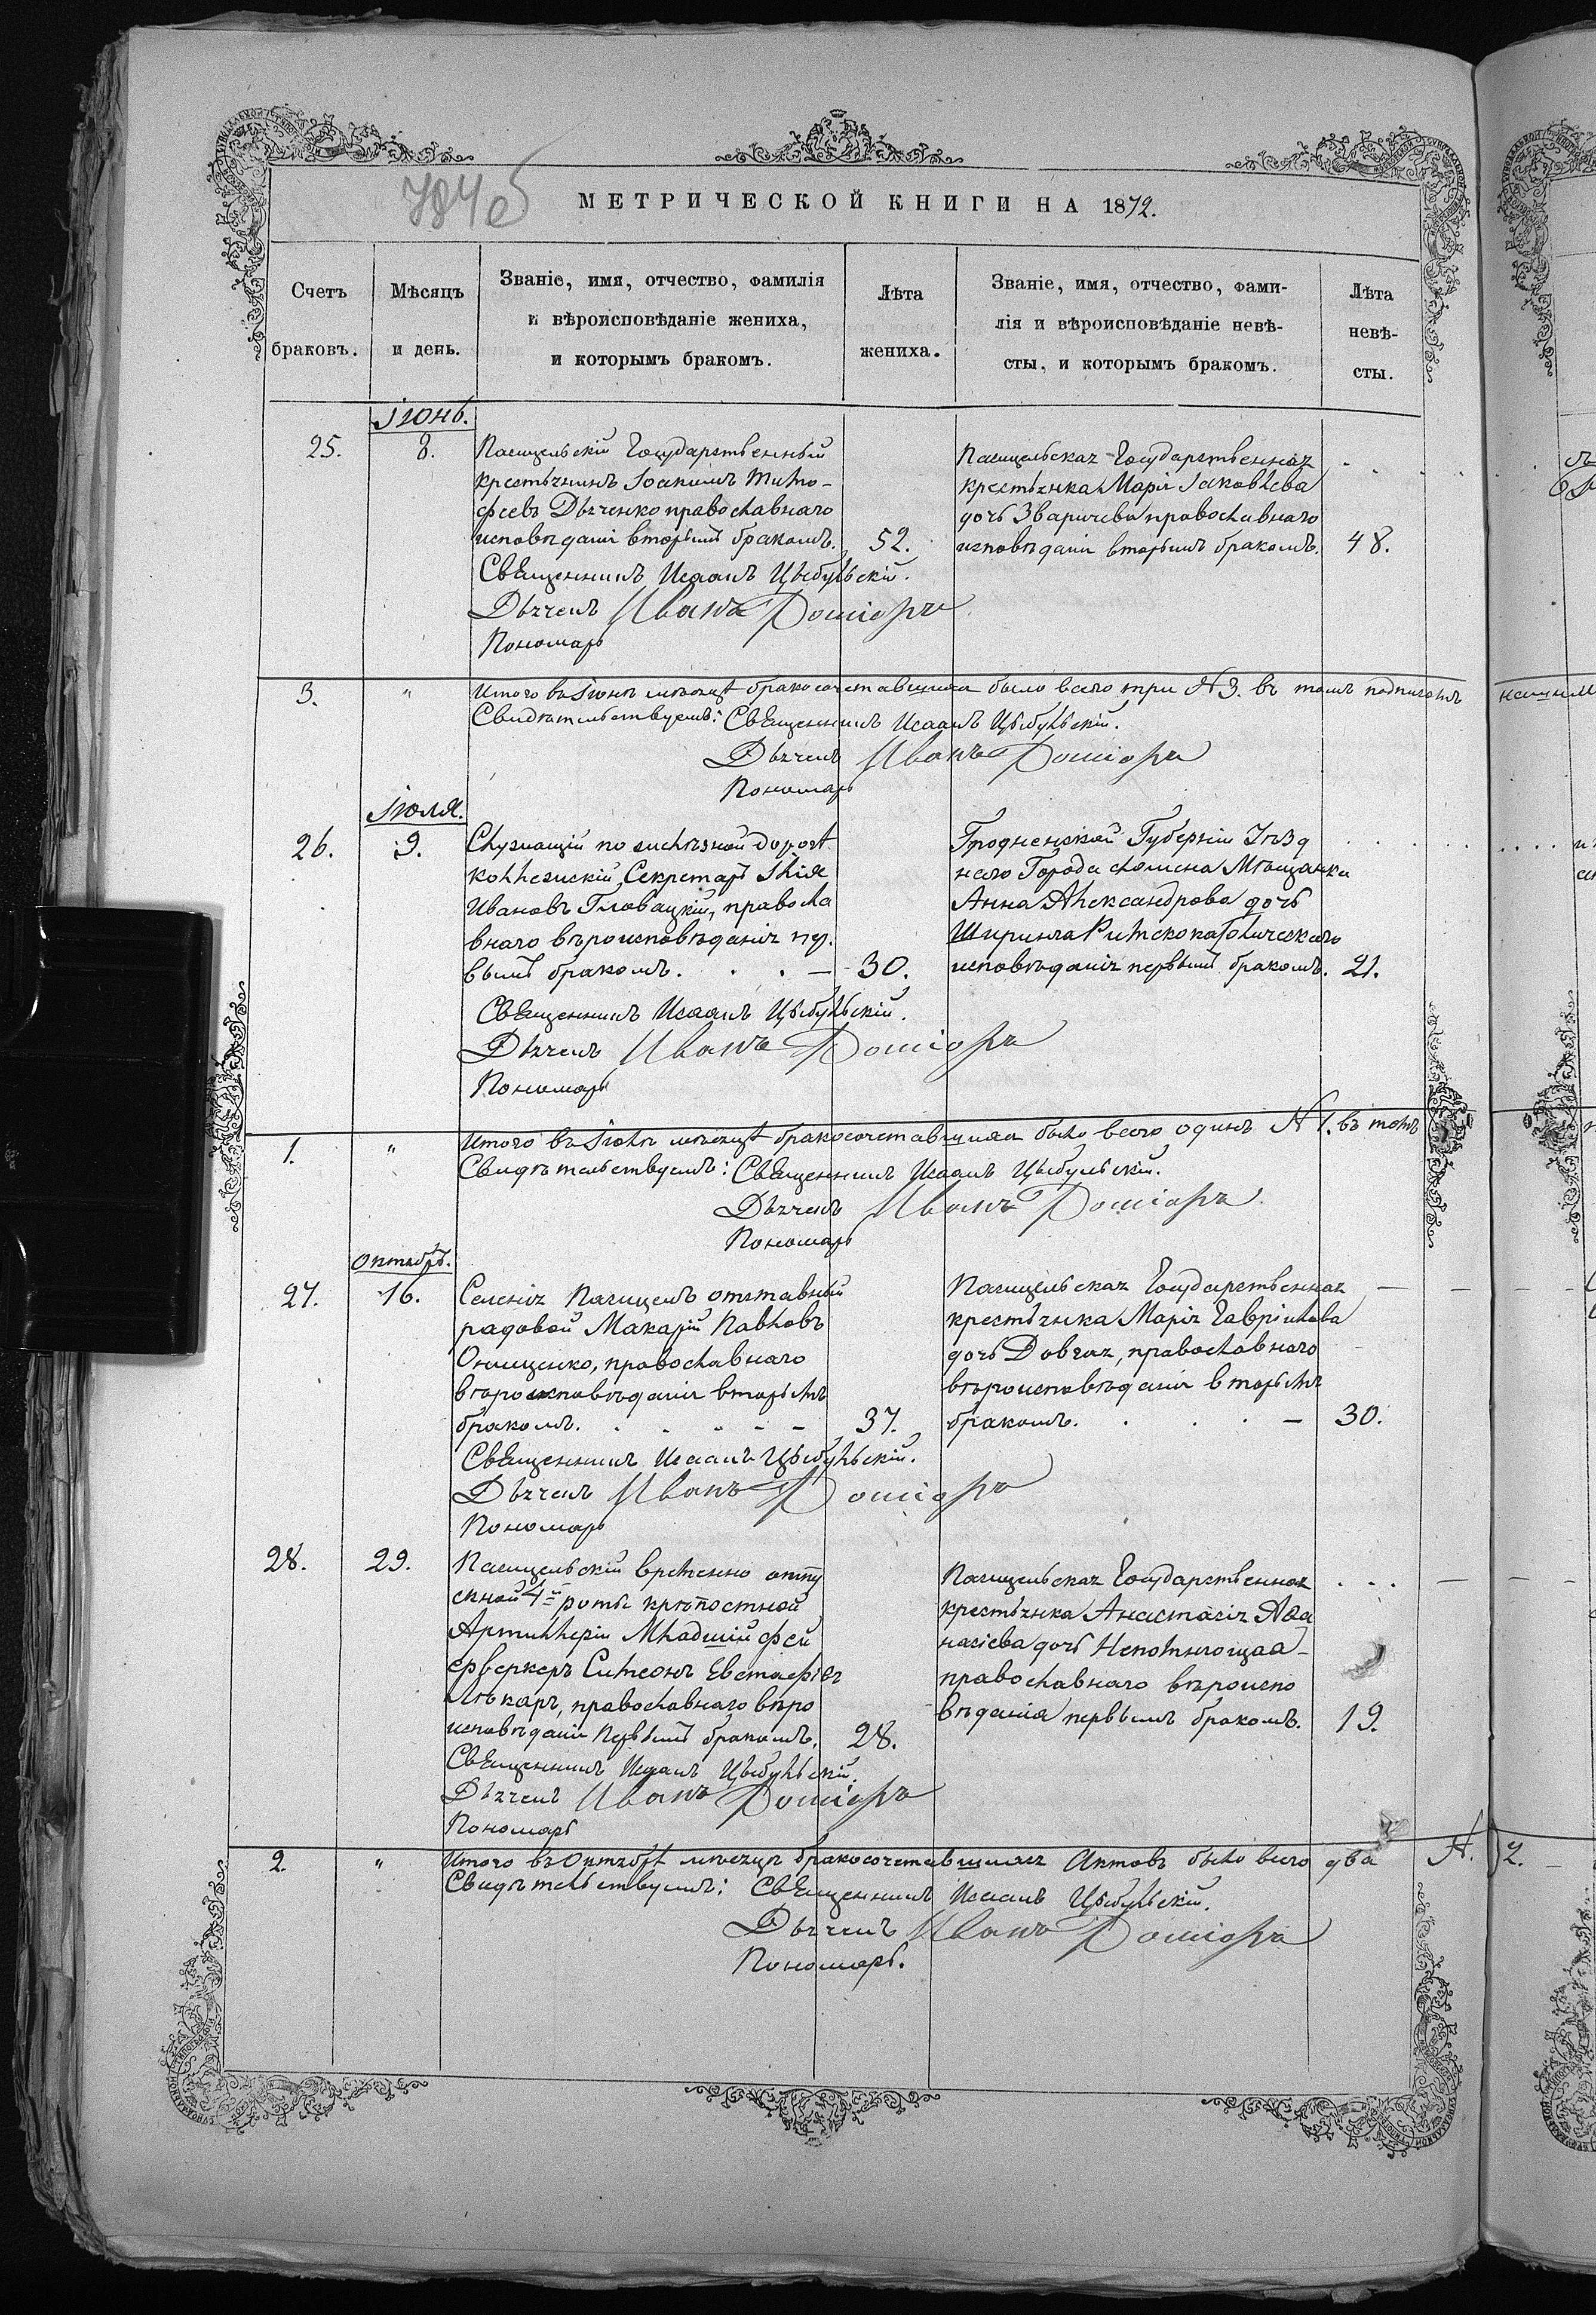 784об
МЕТРИЧЕСКОЙ КНИГИ НА 1872.
Счетъ
браковъ.
Мѣсяцъ
и день.
Званіе, имя, отчество, фамилія
и вѣроисповѣданіе жениха,
и которымъ бракомъ.
Лѣта
жениха.
Званіе, имя, отчество, фами-
лія и вѣроисповѣданіе невѣ-
сты, и которымъ бракомъ.
Лѣта
невѣ-
сты.
Іюнь.
25.
8.
Государственный
крестьянинъ Іоакимъ Тимо-
феевъ Дяченко православнаго
исповѣданія вторымъ бракомъ.
52.
Государственная
крестьянка Марія Іаковлева
дочь Зваричева православнаго
исповѣданія вторымъ бракомъ.
48.
Священникъ Исаакъ Цыбульскій.
Дьячекъ Иванъ
Пономарь
3.
"
Итого въ Іюнѣ мѣсяцѣ бракосочетавшихся было всего три №3. въ томъ подписомъ
Свидѣтельствуемъ: Священникъ Исаакъ Цыбульскій.
Дьячекъ Иванъ
Пономарь
Іюля.
26.
9.
Служащій по желѣзной дорогѣ
коллежскій Секретарь Илія
Ивановъ Гловацкій, правосла
внаго вѣроисповѣданія пер.
вымъ бракомъ.
30.
Гродненской Губерніи Уѣзд
наго Города Слонима Мѣщанка
Анна Александрова дочь
Римскокатолическаго
исповѣданія первымъ бракомъ.
21.
Священникъ Исаакъ Цыбульскій.
Дьячекъ Иванъ
Пономарь
1.
"
Итого въ Іюлѣ мѣсяцѣ бракосочетавшихся было всего одинъ №1. въ томъ
Свидѣтельствуемъ: Священникъ Исаакъ Цыбульскій.
Дьячекъ Иванъ
Пономарь
Октябрь.
27.
16.
Селенія отставный
рядовой Макарій Павловъ
Онищенко, православнаго
вѣроисповѣданія вторымъ
бракомъ.
37.
Государственная
крестьянка Марія Гавріилова
дочь Довгая, православнаго
вѣроисповѣданія вторымъ
бракомъ.
30.
Священникъ Исаакъ Цыбульскій.
Дьячекъ Иванъ
Пономарь
28.
29.
временно отпу
скной 4й роты крѣпостной
Артиллеріи Младшій фей
ерверкеръ Симеонъ Евстафіев
Лѣкаръ, православнаго вѣро
исповѣданія первымъ бракомъ.
28.
Государственная
крестьянка Анастасія Аѳа
насіева дочь Непомнющая
православнаго вѣроиспо
вѣданія первымъ бракомъ.
19.
Священникъ Исаакъ Цыбульскій.
Дьячекъ Иванъ
Пономарь
2.
"
Итого въ Октябрѣ мѣсяцѣ бракосочетавшихся Актовъ было всего два № 2.
Свидѣтельствуемъ: Священникъ Исаакъ Цыбульскій.
Дьячекъ Иванъ
Пономарь.